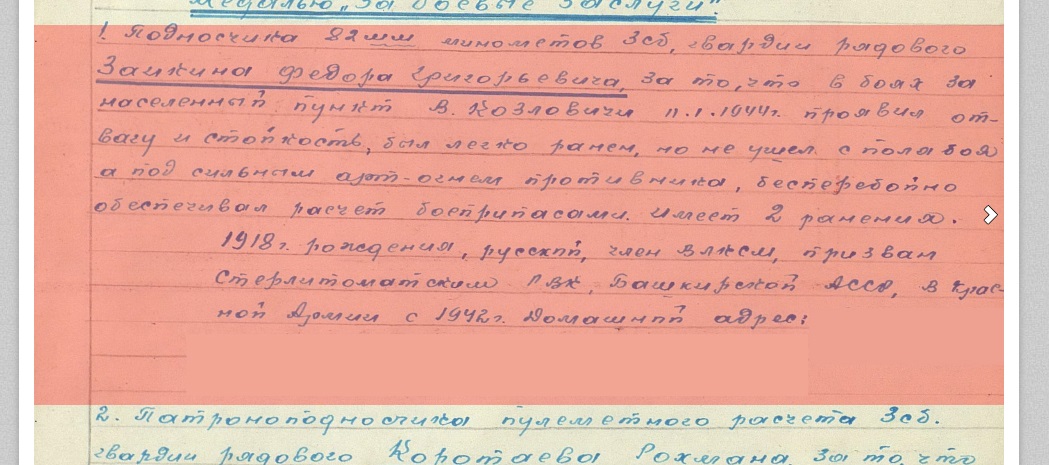 медалью „За боевые заслуги".
1. Подносчика 82 мм минометов 3сб, гвардии рядового
Заикина Федора Григорьевича, за то, что в боях за
населенный пункт В. Козловичи 11.1.1944г. проявил от-
вагу и стойкость, был легко ранен, но не ушел с поля боя
а под сильным арт-огнем противника, бесперебойно
обеспечивал расчет боеприпасами. Имеет 2 ранения.
1918г. рождения, русский, член ВЛКСМ, призван
Стерлитоматским РВК, Башкирской АССР, в Крас-
ной Армии с 1942г. Домашний адрес:
2. Патроноподносчика пулеметного расчета 3сб.
гвардии рядового Коротаева Рохмана, за то, что